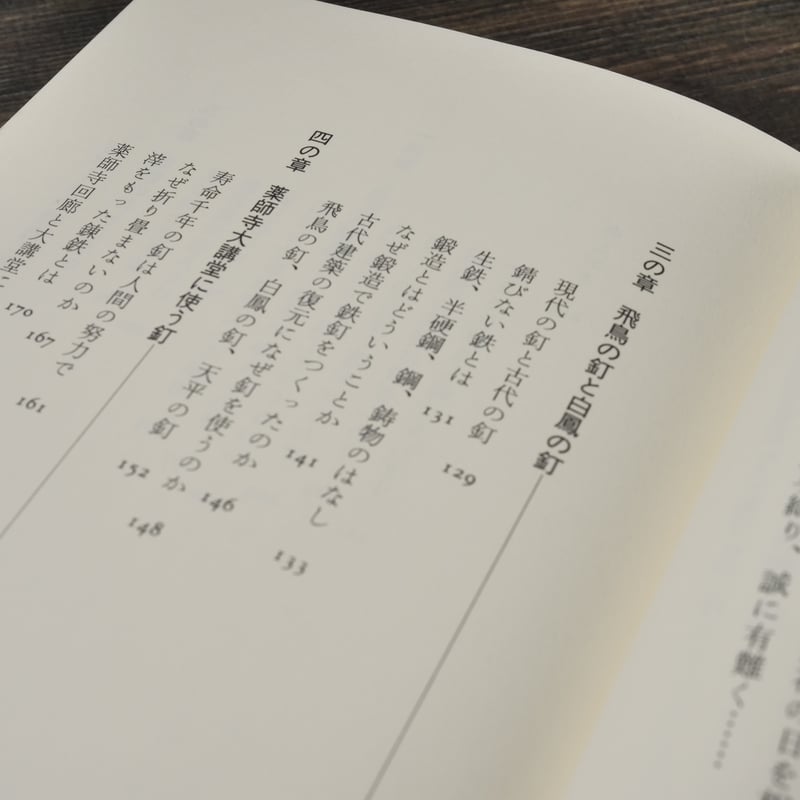 の日を
誠に有難く……
三の章　飛鳥の釘と白鳳の釘
現代の釘と古代の釘　129
錆びない鉄とは　131
生鉄、半硬鋼、鋼、鋳物のはなし　133
鍛造とはどういうことか　141
なぜ鍛造で鉄釘をつくったのか　146
古代建築の復元になぜ釘を使うのか　148
飛鳥の釘、白鳳の釘、天平の釘　152
四の章　薬師寺大講堂に使う釘
寿命千年の釘は人間の努力で　161
なぜ折り畳まないのか　167
滓をもった錬鉄とは　170
薬師寺回廊と大講堂に